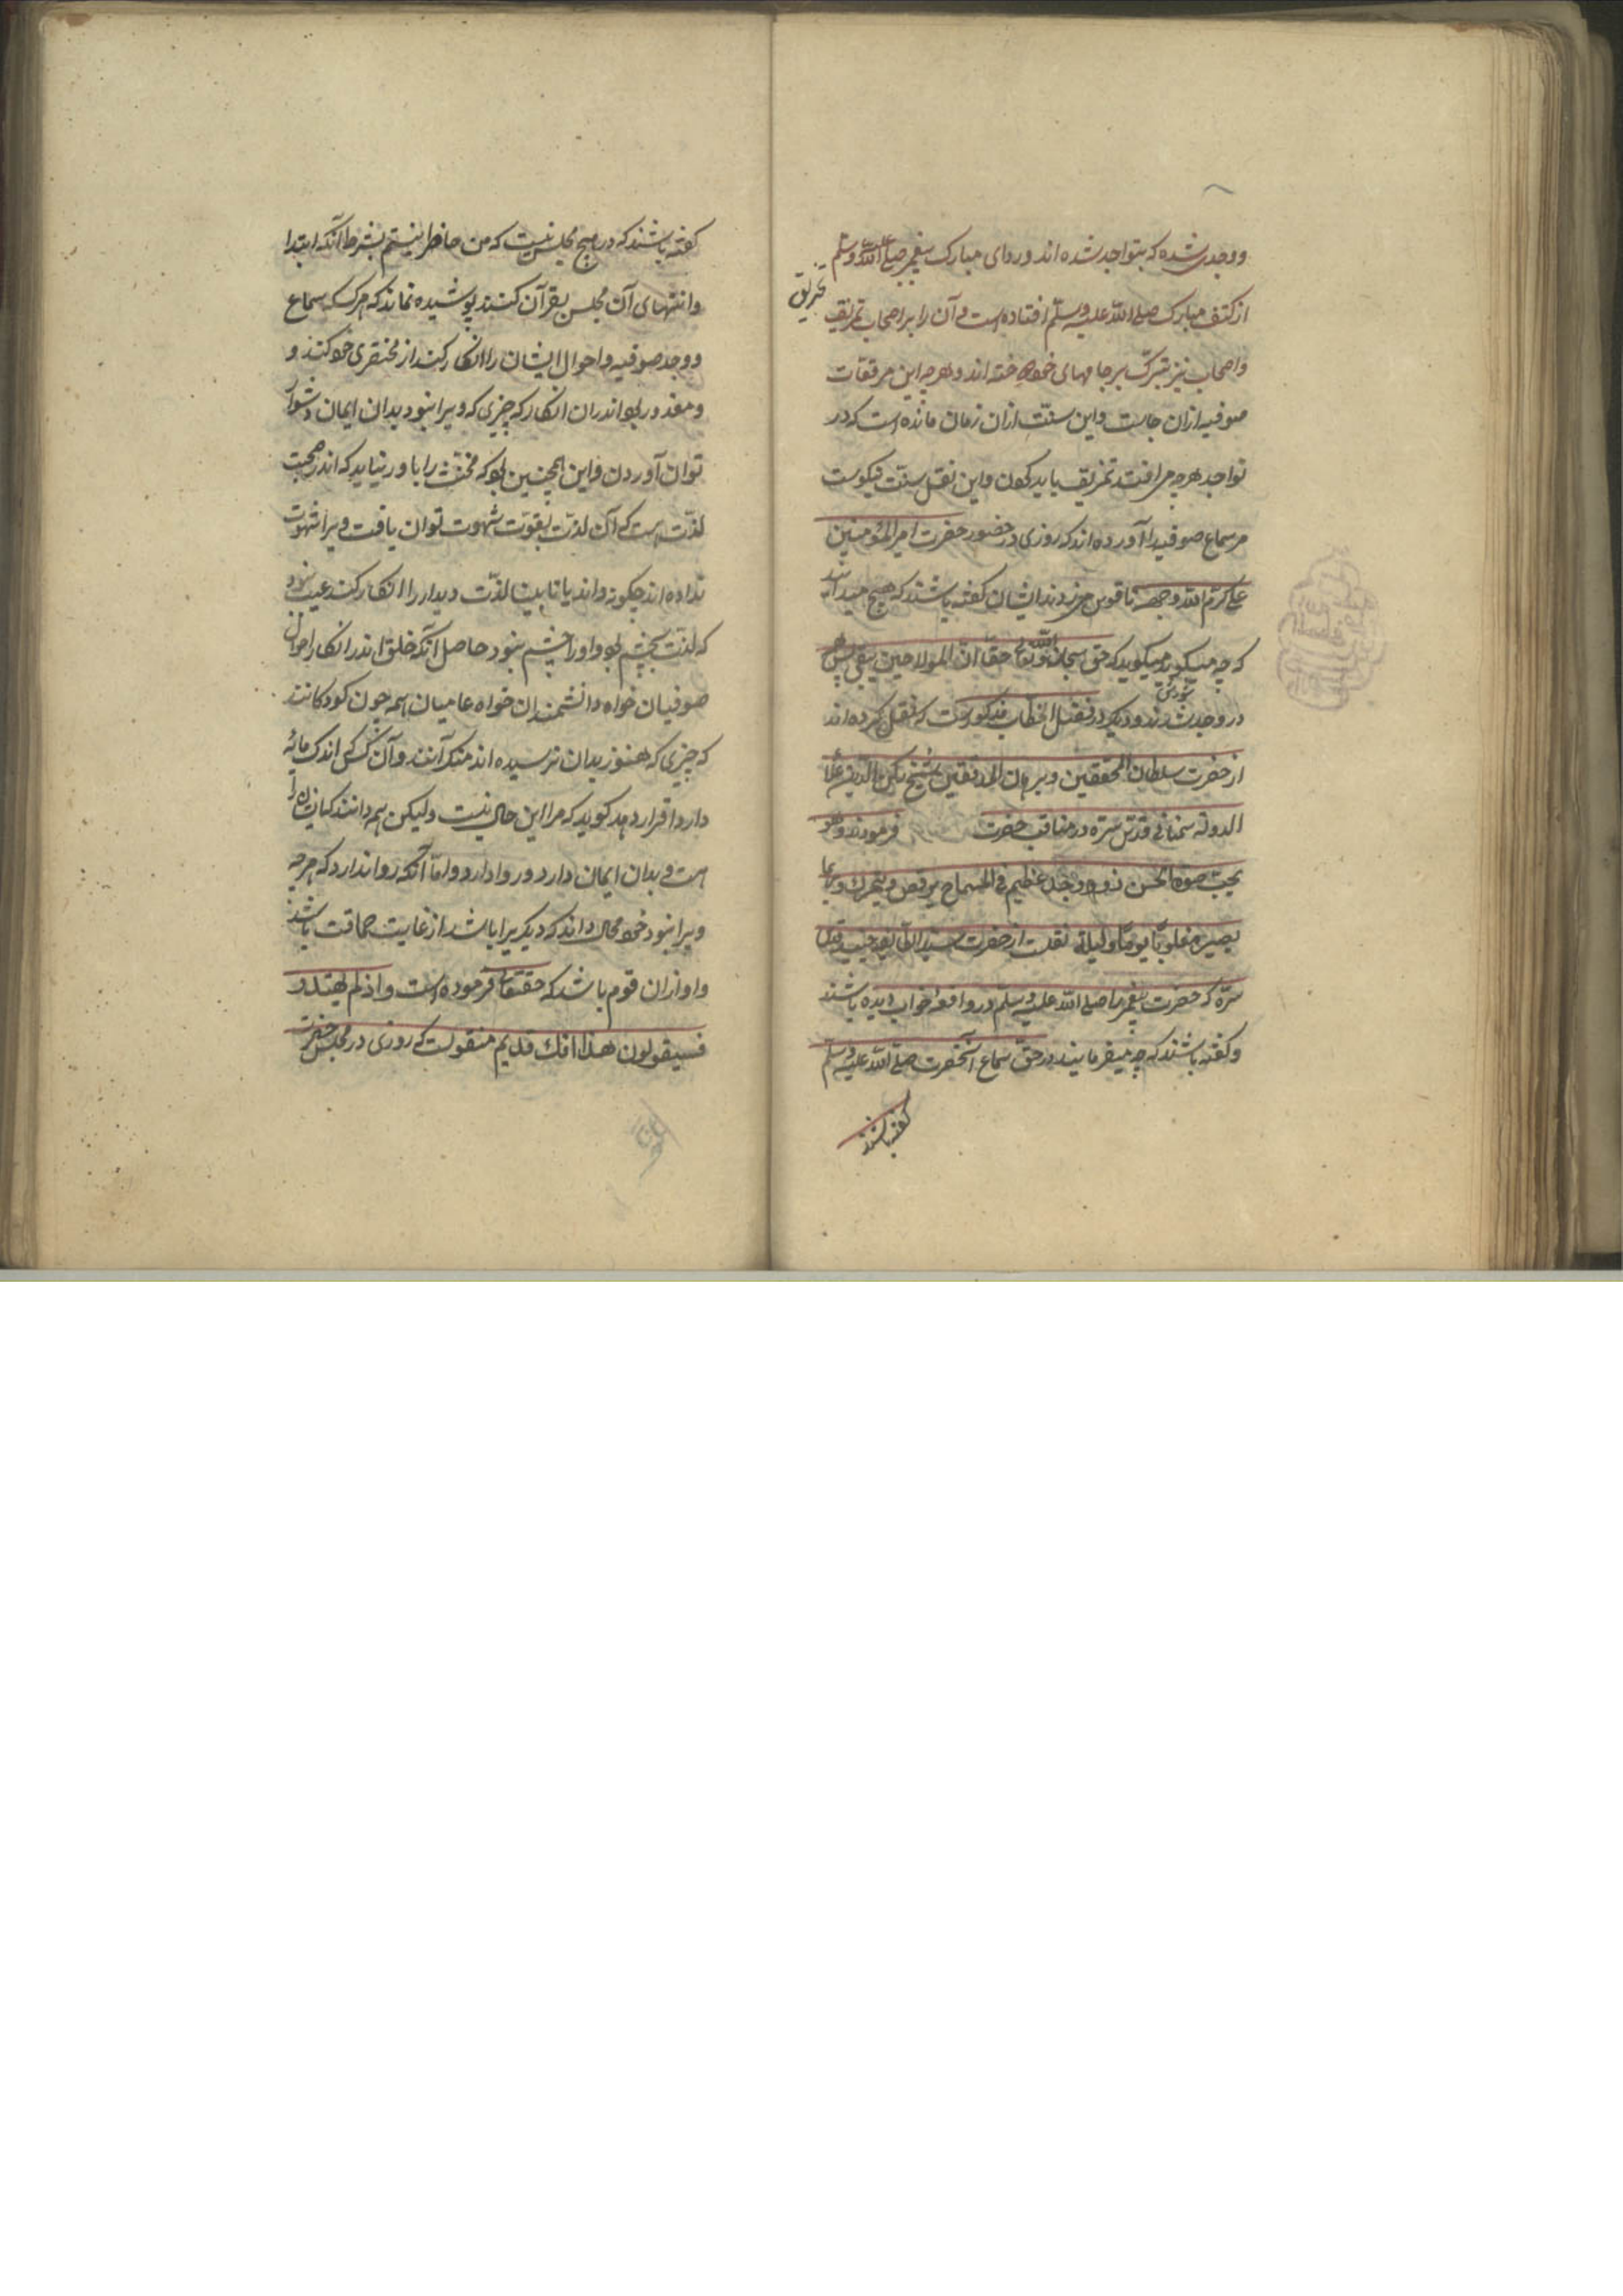 ووجدی شده که بتواجد شده اند و ردای مبارک پیغمبر صلی الله علیه وسلم
از کتف مبارک صلی الله علیه وسلم افتاده است و آن را بر اصحاب تمزیق
تمزیق
واصحاب نیز بتبرک بر جامهای خود دوخته اند و هرچه این مرقعات
صوفیه ازان جاست واین سنت ازان زمان مانده است که در
تواجد هرچه می افتد تمزیق باید کردن واین نقل سنت نیکوست
مر سماع صوفیه را آورده اند که روزی در حضور حضرت امیر المؤمنین
علی کرم الله وجهه ناقوس می زدند ایشان گفته باشند که هیچ میدانید
که چه میگوید میگوید که حق سبحانه وتعالی حقا ان المولا حین یبقی پس
در وجد شدند ودیگر در فصل الخطاب مذکورست که نقل کرده اند
از حضرت سلطان المحققین وبرهان المدققین شیخ رکن الدین علا
الدوله سمنانی قدس سره در مناقب حضرت فرمودند وهو
یحب صوت الحسن ذو وجد عظیم فی السماع یرقص ویتحرک وربما
یصیر مغلوبا یوما ولیلة نقلست از حضرت سید الطایفه جنید قدس
سره که حضرت پیغمبر ما صلی الله علیه وسلم در واقعه خواب دیده باشند
وگفته باشند که چه میفرمایند در حق سماع آنحضرت صلی الله علیه وسلم
گفته باشند
گفته باشند که در هیچ مجلس نیست که من حاضر نیستم بشرط آنکه ابتدا
وانتهای آن مجلس بقرآن کنند پوشیده نماند که هرکه سماع
ووجد صوفیه واحوال ایشان را انکار کند از مختصری خود کند و
ومعذور بود اندران انکار که چیزی که ویرا نبود بدان ایمان دشوار
توان آوردن واین همچنین بود که مخنث را باور نیاید که اندر صحبت
لذت هست که آن لذت بقوت شهوت توان یافت ویرا شهوت
نداده اند چگونه داند یا نابینا لذت دیدار را انکار کند عجب نبود
که لذت بچشم بود واو را چشم نبود حاصل آنکه خلق اندر انکار احوال
صوفیان خواه دانشمندان خواه عامیان همه چون کودکانند
که چیزی که هنوز بدان نرسیده اند منکر آنند وآن کس که اندک مایه
دارد اقرار دهد گوید که مرا این حال نیست ولیکن هم دانند که ایشان را
هست و بدان ایمان دارد و روا دارد واما آنکه روا ندارد که هرچه
ویرا نبود خود محال داند که دیگریرا باشد از غایت حماقت باشد
واو ازان قوم باشد که حق تعالی فرموده است واذ لم یهتدو
فسیقولون هذا افک قدیم منقولست که روزی در مجلس حضرت